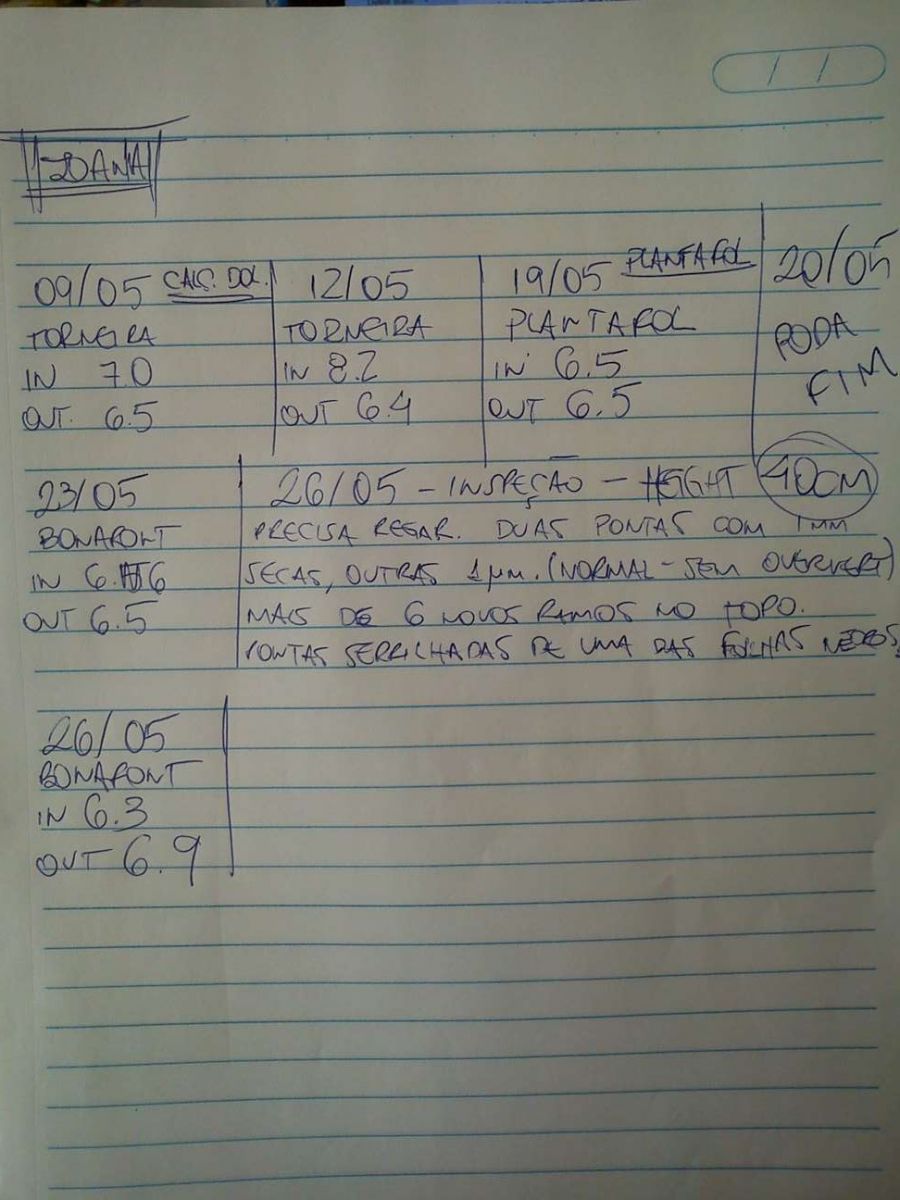 / /
IDANA
09/05 CALC. DOL.
TORNEIRA
IN 7.0
OUT. 6.5
12/05
TORNEIRA
IN 8.2
OUT 6.4
19/05 PLANTAFOL
PLANTAFOL
IN 6.5
OUT 6.5
20/05
PODA
FIM
23/05
BONAFONT
IN 6.6
OUT 6.5
26/05 - INSPEÇÃO - HEIGHT 40CM
PRECISA REGAR. DUAS PONTAS COM 1MM
SECAS, OUTRAS 1µm. (NORMAL - SEM OVERVERT)
MAIS DE 6 NOVOS RAMOS NO TOPO.
PONTAS SERRILHADAS DE UMA DAS FOLHAS
26/05
BONAFONT
IN 6.3
OUT 6.9